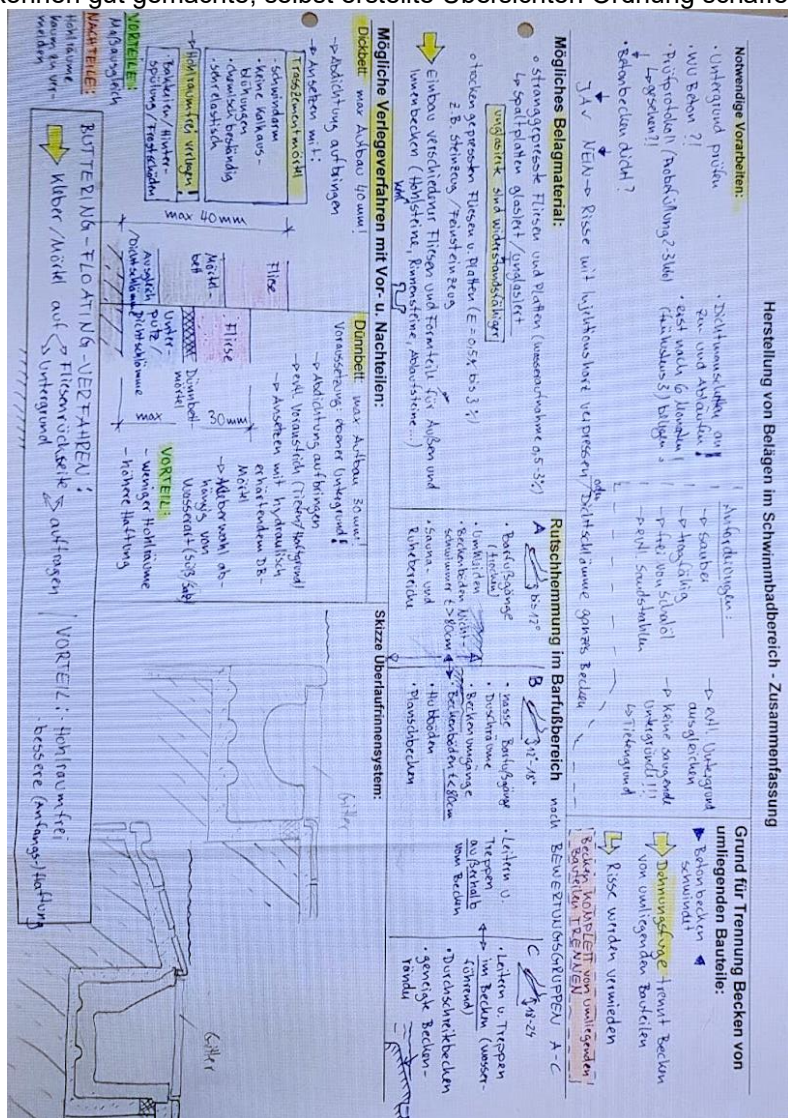 können gut gemachte, selbst erstellte Übersichten Ordnung schaffe
Herstellung von Belägen im Schwimmbadbereich - Zusammenfassung
Notwendige Vorarbeiten:
· Untergrund prüfen
· WU Beton ?!
· Prüfprotokoll
↳ gesehen?!
Betonbecken dicht?
JA
NEIN → Risse mit Injektionsharz verpressen/oder Dichtschlämme ganzes Becken
· Dichtmanschetten an
Zu- und Abläufen!
· erst nach 6 Monaten!
(frühestens 3) belegen
Anforderungen:
→ sauber
→ tragfähig
→ frei von Schalöl
→ evtl. Sandstrahlen
→ evtl. Untergrund
ausgleichen
→ keine saugende
Untergründe!!!
↳ Tiefengrund
Grund für Trennung Becken von
umliegenden Bauteile:
Betonbecken
schwindet
Dehnungsfuge trennt Becken
von umliegenden Bauteilen
Risse werden vermieden
Becken KOMPLETT von umliegenden
Bauteilen TRENNEN
Mögliches Belagmaterial:
stranggepresste Fliesen und Platten (Wasseraufnahme 0,5-3%)
↳ Spaltplatten glasiert/unglasiert
unglasierte sind widerstandsfähiger
trockengepressten Fliesen u. Platten (E = 0,5% bis 3%)
z.B. Steinzeug / Feinsteinzeug
Einbau verschiedener Fliesen und Formteil für Außen und
Innenbecken (Hohlsteine, Rinnensteine, Ablaufsteine...)
Rutschhemmung im Barfußbereich nach BEWERTUNGSGRUPPEN A-C
A bis 12°
· Barfußgänge
(trocken)
· Umkleiden
· Beckenböden Nicht-
schwimmer t > 80cm
· Sauna- und
Ruhebereiche
B 12°-18°
· nasse Barfußgänge
· Duschräume
· Beckenumgänge
· Beckenböden t < 80cm
· Hubböden
· Planschbecken
· Leitern u.
Treppen
außerhalb
vom Becken
C 18-24
· Leitern u. Treppen
im Becken (wasser-
führend)
· Durchschreitebecken
· geneigte Becken-
ränder
Mögliche Verlegeverfahren mit Vor- u. Nachteilen:
Dickbett: max Aufbau 40mm!
→ Abdichtung aufbringen
→ Ansetzen mit:
Trasszementmörtel
· schwindarm
· keine Kalkaus-
blühungen
· chemisch beständig
· sehr elastisch
→ Hohlraumfrei verlegen!
Bakterien/Hinter-
spülung/Frostschäden
VORTEILE:
Maßausgleich
NACHTEILE:
Hohlräume
kaum zu ver-
meiden
max 40mm
Fliese
Mörtel-
bett
Ausgleich
/Dichtschlämme
Dünnbett: max Aufbau 30mm!
Voraussetzung: ebener Untergrund!
→ Abdichtung aufbringen
→ evtl. Voranstrich (Tiefen/Haftgrund)
→ Ansetzen mit hydraulisch
erhärtendem DB-
Mörtel
→ Kleberwahl ab-
hängig von
Wasserart (Süß/Salz)
VORTEIL:
- weniger Hohlräume
- höhere Haftung
Fliese
Dünnbett-
mörtel
Unter-
putz/
Dichtschlämme
max 30mm
Skizze Überlaufrinnensystem:
Gitter
Gitter
BUTTERING-FLOATING-VERFAHREN!
Kleber/Mörtel auf → Fliesenrückseite auftragen
→ Untergrund
VORTEIL: · Hohlraumfrei
· bessere (Anfangs-)Haftung